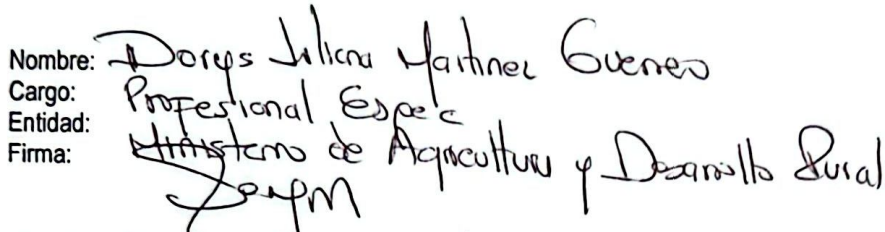 Nombre: Dorys Juliana Martinez Guerrero
Cargo: Profesional Espec
Entidad: Ministerio de Agricultura y Desarrollo Rural
Firma: DorysM